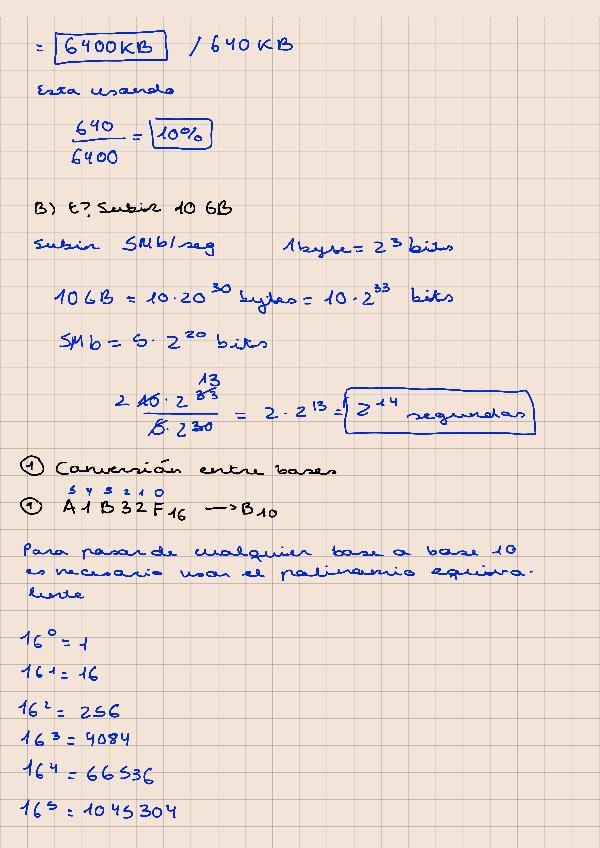 = 6400KB / 640 KB
Esta usando
640
6400
= 10%
B) t? Subir 10 GB
Subir 5Mb/seg 1 byte = 2³ bits
10GB = 10·20³⁰ bytes = 10·2³³ bits
5Mb = 5·2²⁰ bits
13
2 10·2³³
5·2³⁰
= 2·2¹³ = 2¹⁴ segundos
① Conversión entre bases
5 4 3 2 1 0
① A1B32F₁₆ → B₁₀
Para pasar de cualquier base a base 10
es necesario usar el polinomio equiva-
lente
16⁰ = 1
16¹ = 16
16² = 256
16³ = 4084
16⁴ = 66536
16⁵ = 1045304